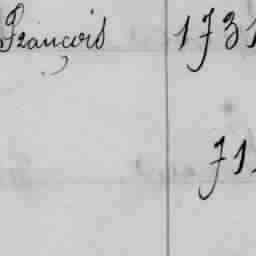 François 1731
71